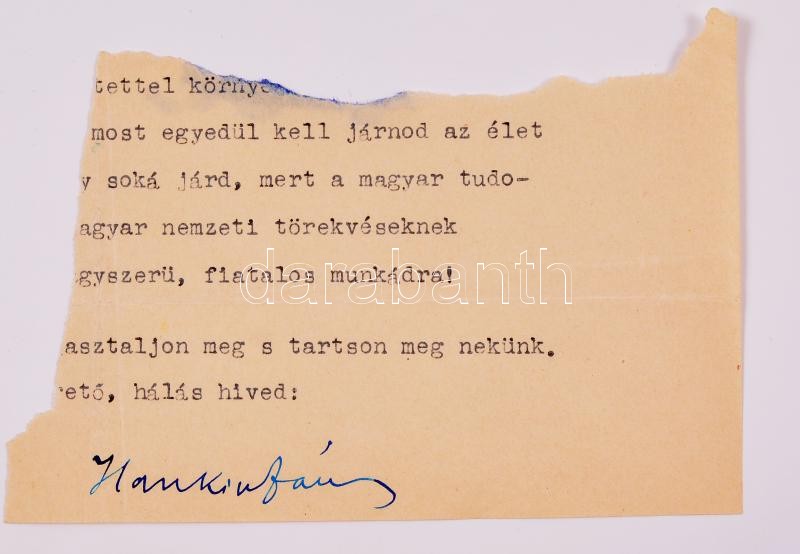 tettel környe
most egyedül kell járnod az élet
y soká járd, mert a magyar tudo-
agyar nemzeti törekvéseknek
gyszerü, fiatalos munkádra!
darabanth
asztaljon meg s tartson meg nekünk.
rető, hálás hived: